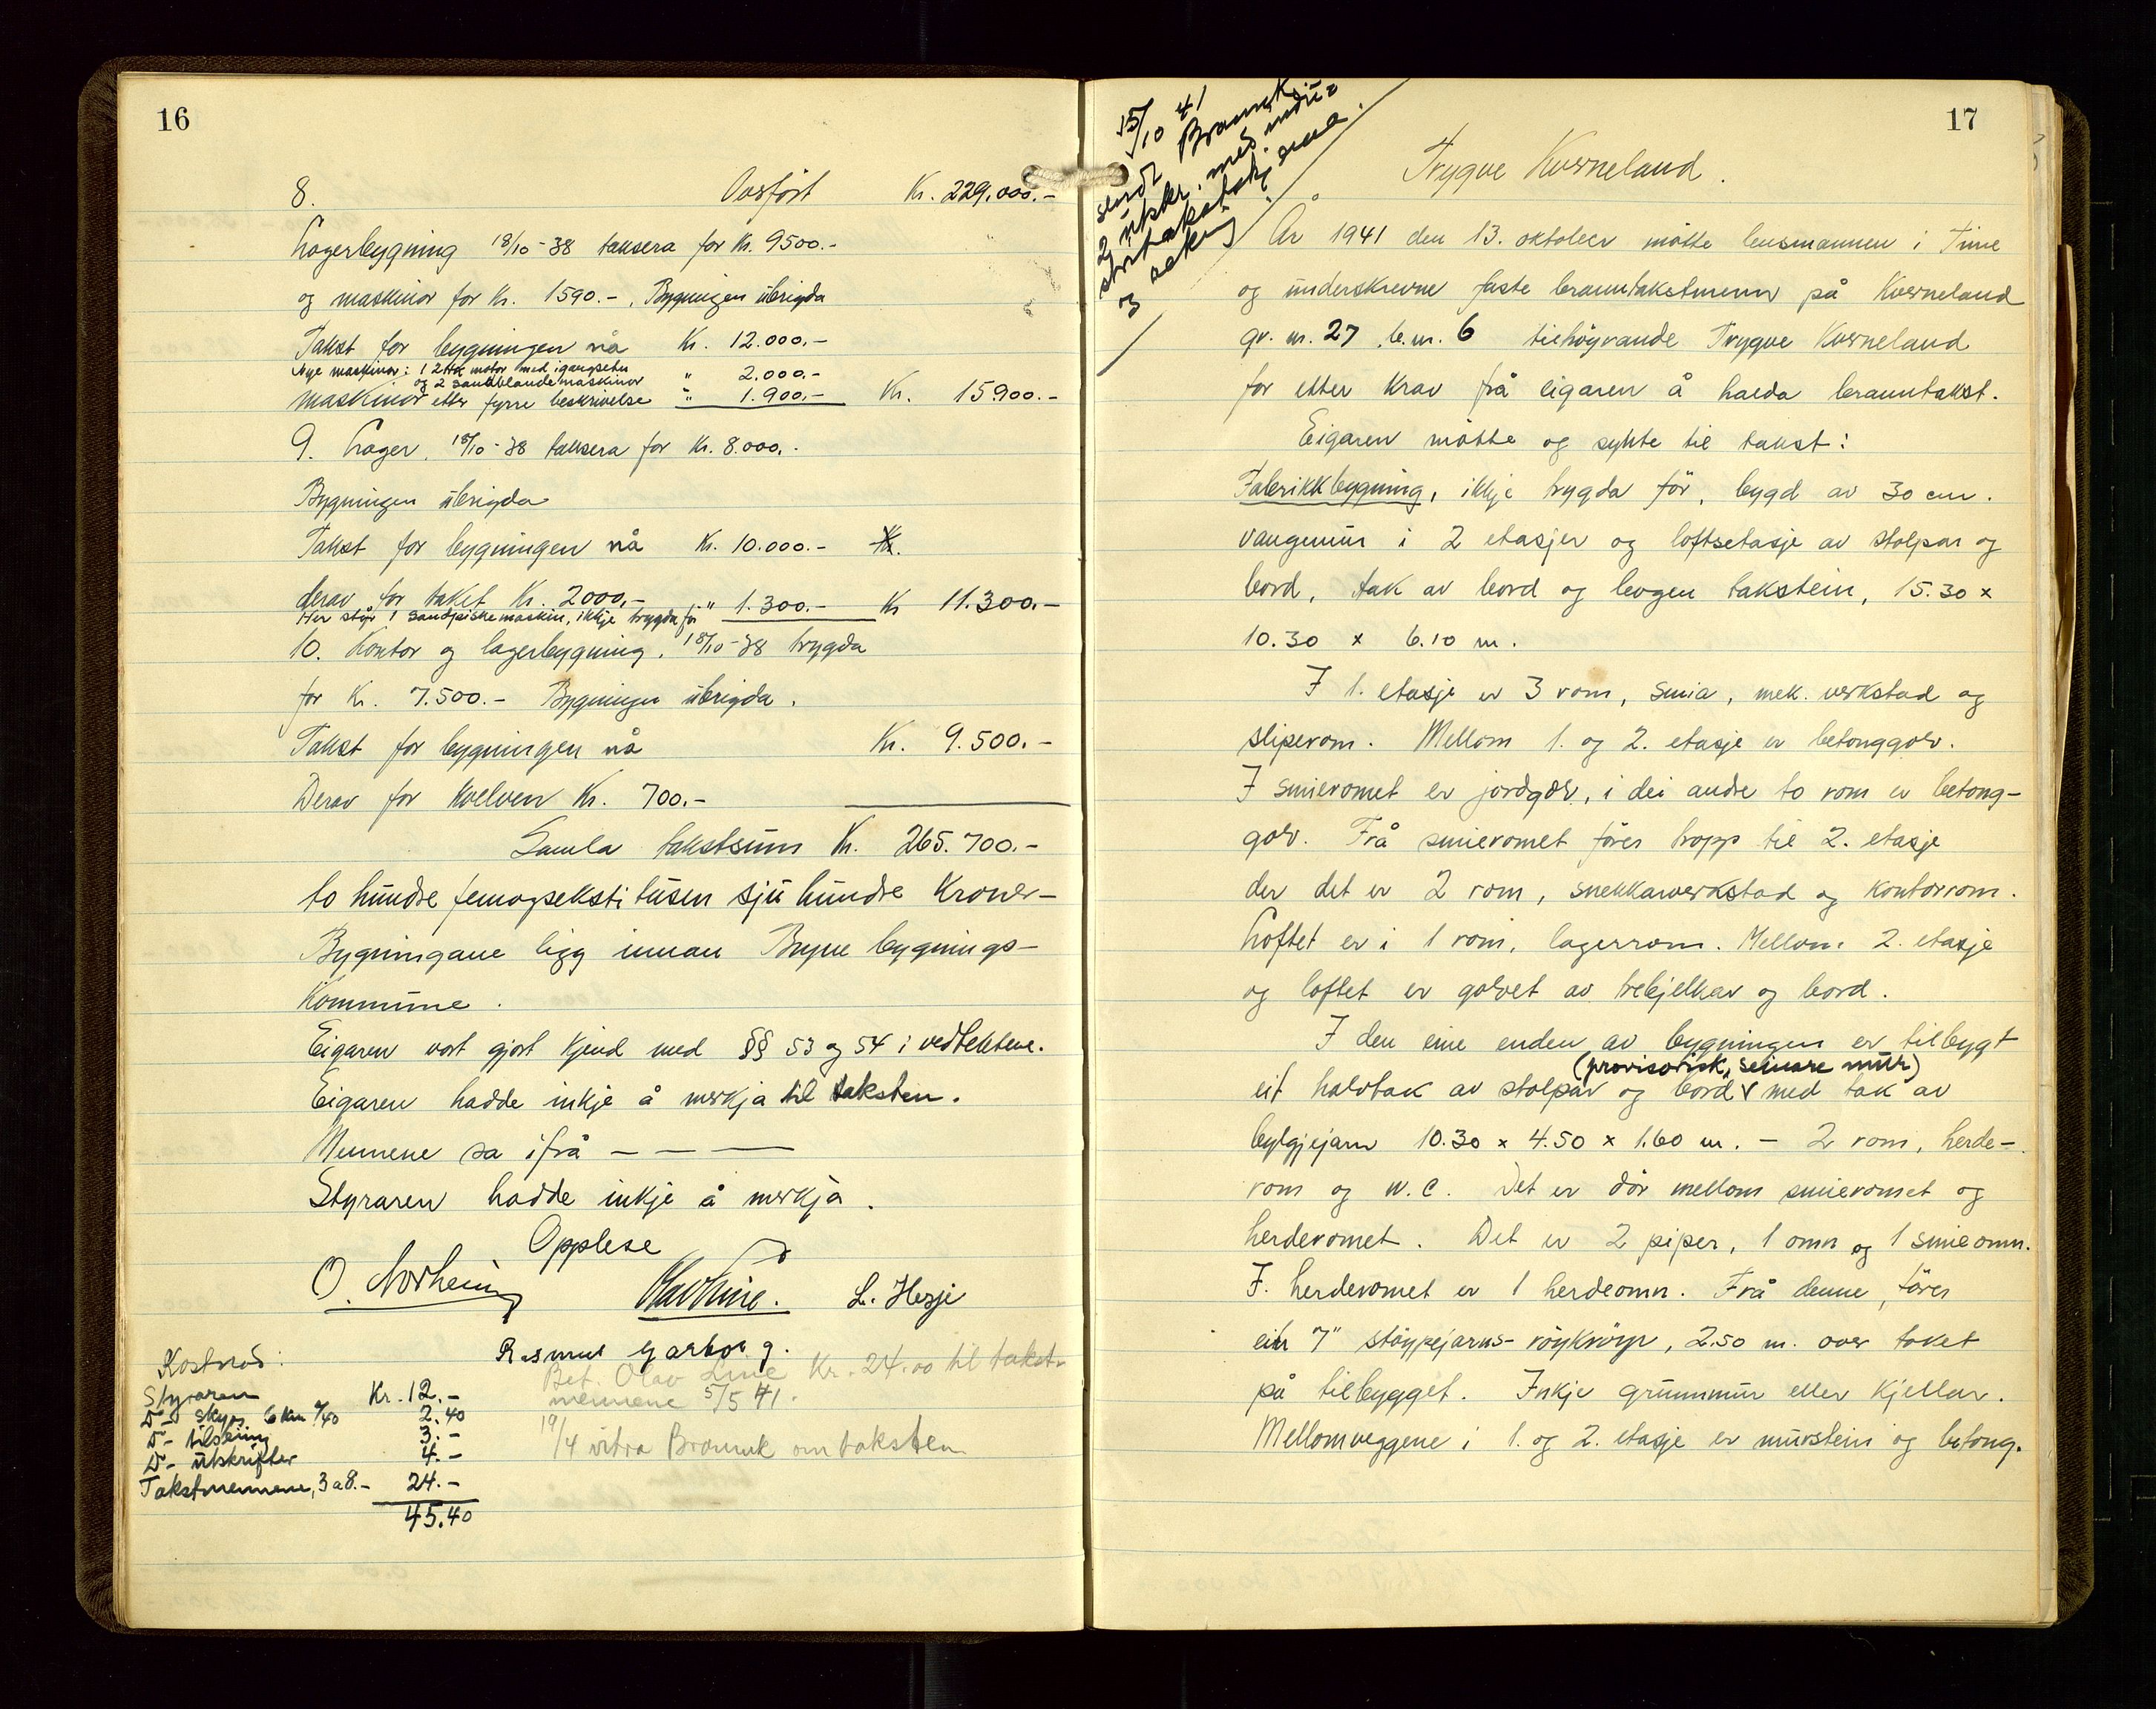 16
8. Overført Kr. 229.000.-
Lagerbygning 18/10-38 taksera for Kr. 9500.-
og maskinor for Kr. 1590.-. Bygningen ubrigda
Takst for bygningen nå Kr. 12.000.-
Nye maskinor: 1 2 HK motor med igangsetter
og 2 sandblandemaskinor " 2.000.-
maskinor etter fyrre beskrivelse " 1.900.- Kr. 15900.-
9. Lager. 18/10-38 taksera for Kr. 8.000.-
Bygningen ubrigda
Takst for bygningen nå Kr. 10.000.- Kr.
derav for taket Kr. 2000.-
Her står 1 sandpiskemaskin, ikkje trygda før " 1.300.- Kr 11.300.-
10. Kontor og lagerbygning. 18/10-38 trygda
for Kr. 7.500.- Bygningen ubrigda.
Takst for bygningen nå Kr. 9.500.-
Derav for kvelven Kr. 700.-
Samla takstsum Kr. 265.700.-
to hundre femogseksti tusen sju hundre Kroner-
Bygningane ligg innan Bryne bygnings-
Kommune.
Eigaren vart gjort kjend med §§ 53 og 54 i vedtektene.
Eigaren hadde inkje å merkja til taksten.
Mennene sa ifrå — — —
Styraren hadde inkje å merkja.
Opplese
O. Norheim Olav Line. L. Hesje
Rasmus Garborg.
Bet. Olav Line Kr. 24.00 til takst-
mennene 5/5 41.
19/4 vitra Brannk om taksten
Kostnad:
Styraren Kr. 12.-
Do- skyss 6 km a/40 2.40
Do- tilseiing 3.-
Do- utskrifter 4.-
Takstmennene, 3 a 8.- 24.-
45.40
17
15/10 41
sendt Brannk.
2 utskr. med
3
Trygve Kverneland.
År 1941 den 13. oktober møtte lensmannen i Time
og underskrevne faste branntakstmenn på Kverneland
gr. nr. 27 b.nr. 6 tilhøyrande Trygve Kverneland
for etter krav frå eigaren å halda branntakst.
Eigaren møtte og synte til takst:
Fabrikkbygning, ikkje trygda før, bygd av 30 cm.
vangemur i 2 etasjer og loftsetasje av stolpar og
bord, tak av bord og bogen takstein, 15.30 x
10.30 x 6.10 m.
I 1. etasje er 3 rom, smia, mek. verkstad og
sliperom. Mellom 1. og 2. etasje er betonggolv.
I smieromet er jordgolv, i dei andre to rom er betong-
golv. Frå smieromet fører tropp til 2. etasje
der det er 2 rom, snekkarverkstad og kontorrom.
Loftet er i 1 rom, lagerrom. Mellom 2. etasje
og loftet er golvet av trebjelkar og bord.
I den eine enden av bygningen er tilbygt
(provisorisk, seinare mur)
eit halvtak av stolpar og bord v med tak av
bylgjejarn 10.30 x 4.50 x 1.60 m. - 2 rom, herde-
rom og W.C. Det er dør mellom smieromet og
herderomet. Det er 2 piper, 1 omn og 1 smieomn.
I herderomet er 1 herdeomn. Frå denne fører
eit 7" støypejarns-røykrøyr, 2.50 m. over taket
på tilbygget. Inkje grunnmur eller kjellar.
Mellomveggene i 1. og 2. etasje er murstein og betong.